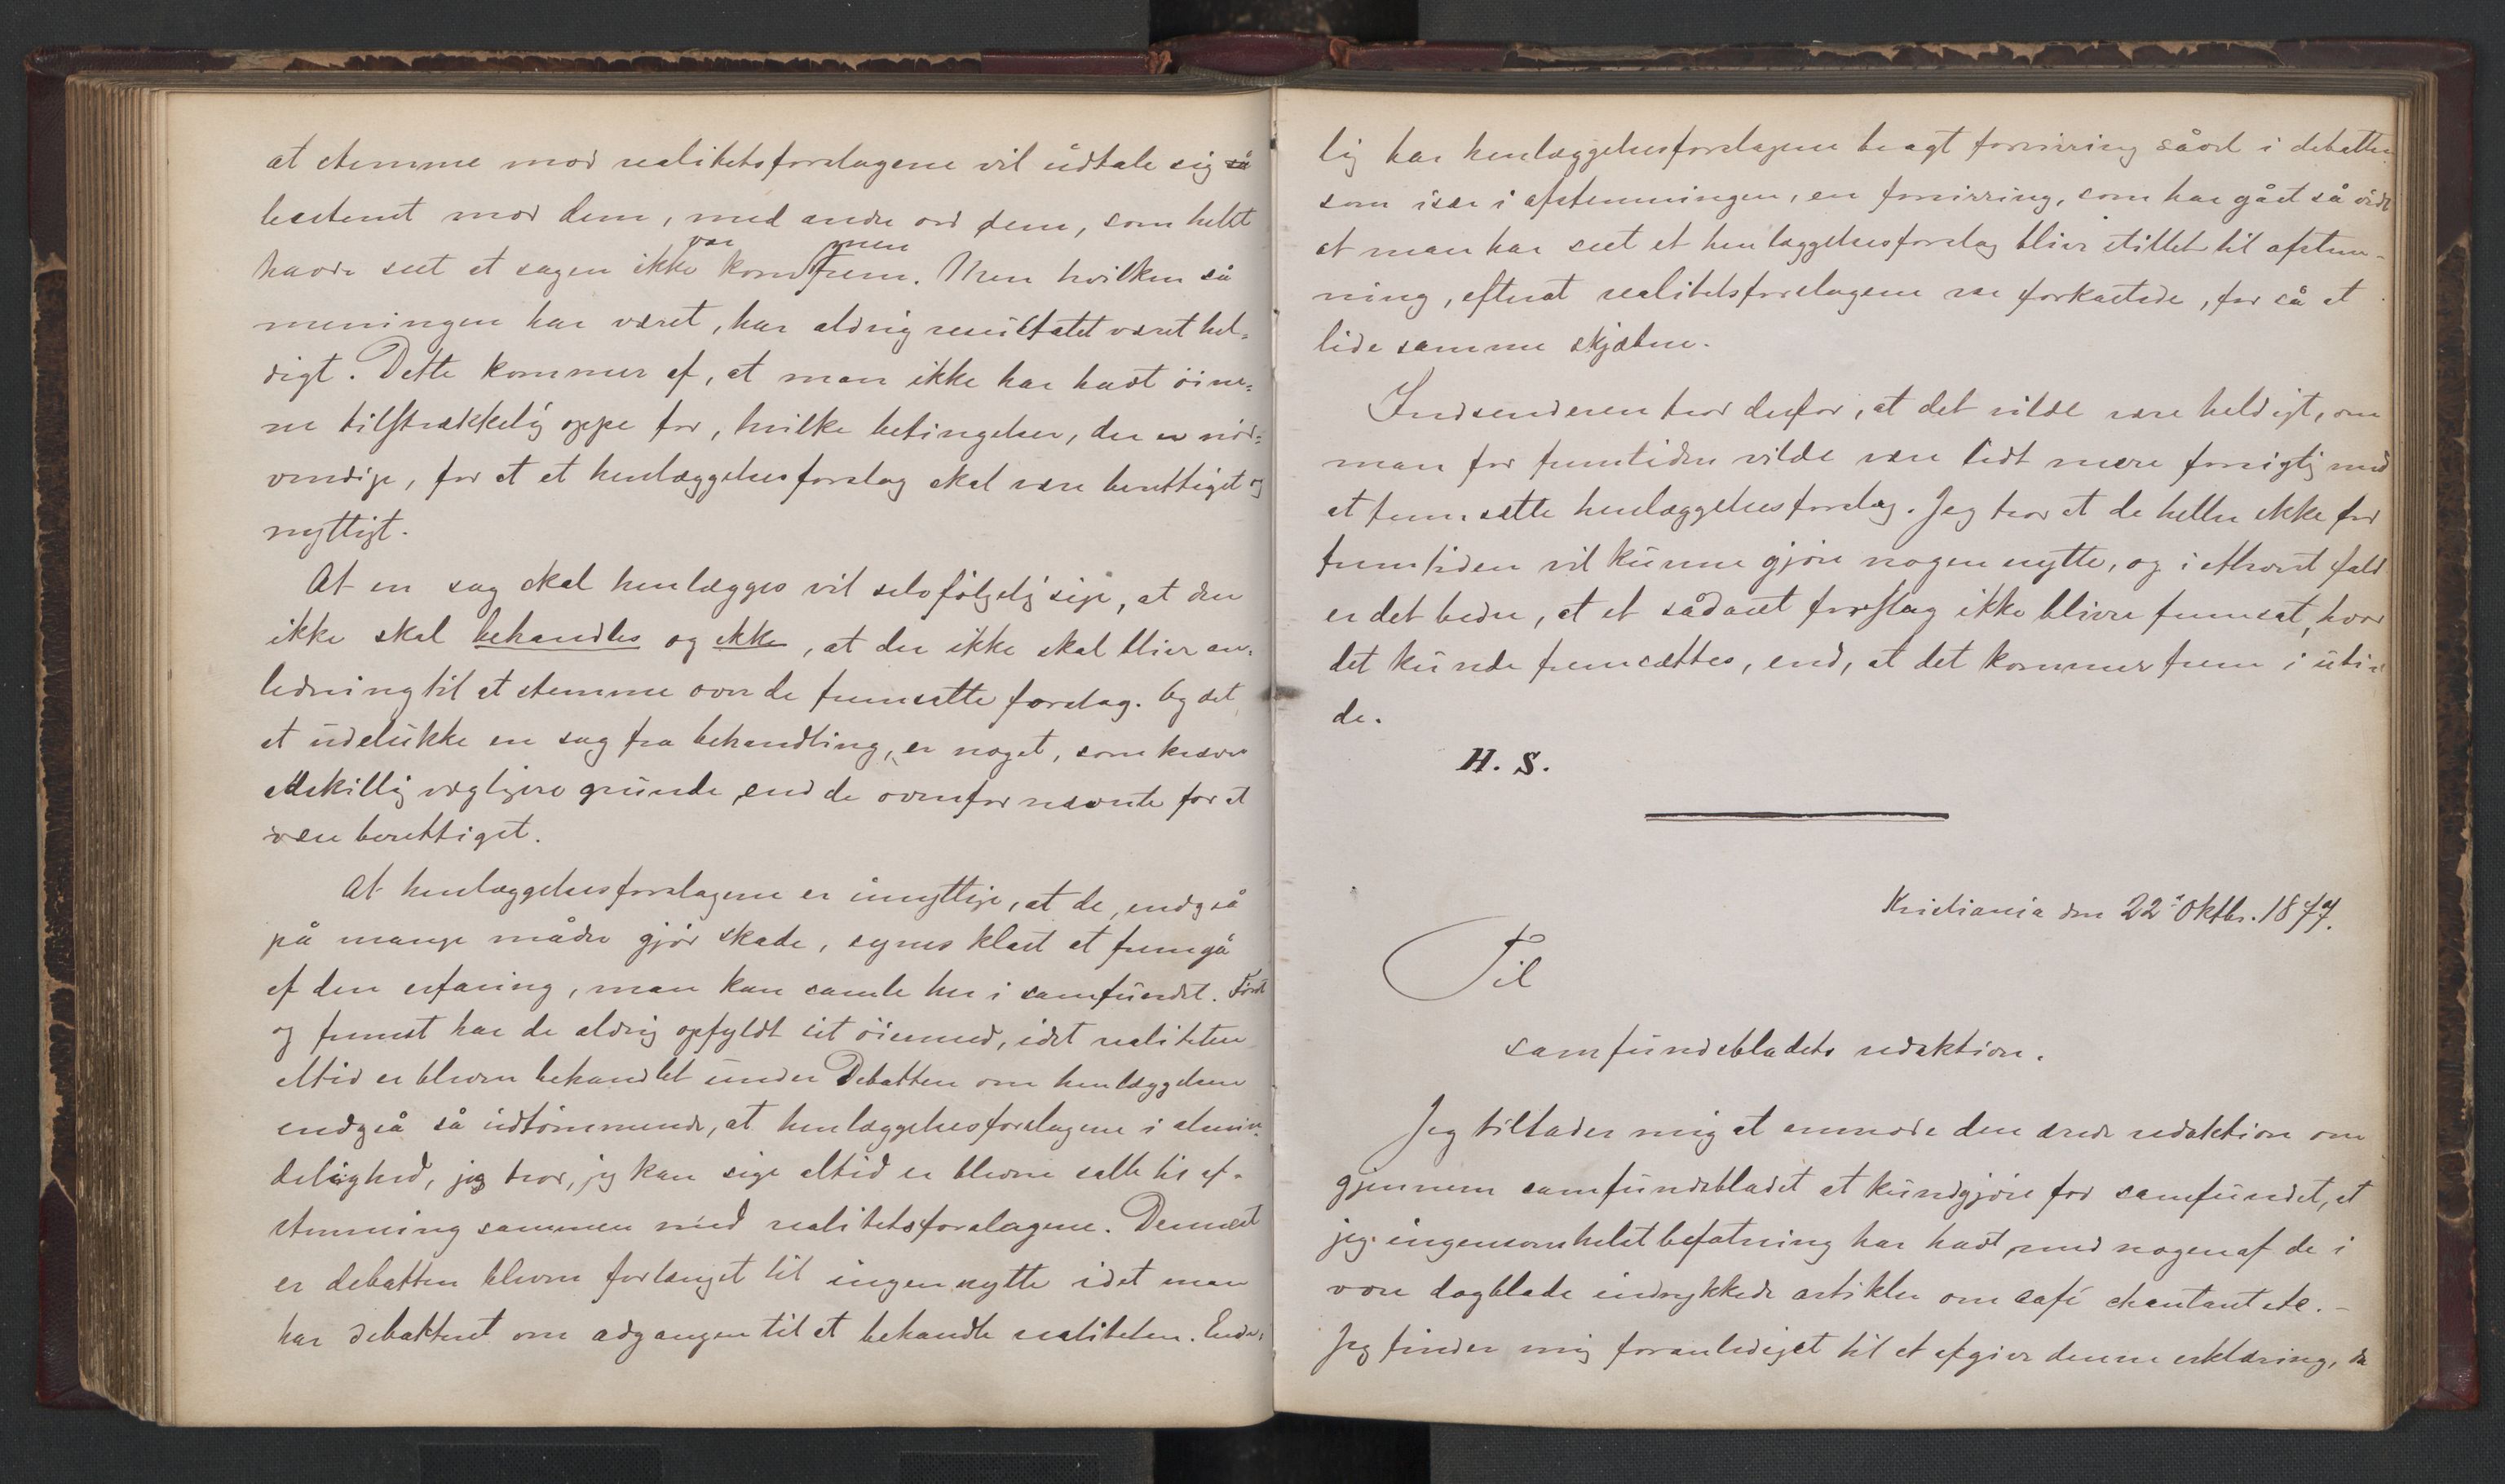 at stemme mod realitetsforslagene vil udtale sig så
bestemt mod dem, med andre ord dem, som helst
havde seet at sagen ikke var kommen frem. Men hvilken så
meningen har været, har aldrig resultatet været hel-
digt. Dette kommer af, at man ikke har havt öine-
ne tilstrækkelig oppe for, hvilke betingelser, der er nöd-
vendige, for at et henlæggelsesforslag skal være berettiget og
nyttigt.
At en sag skal henlægges vil selvfölgelig sige, at den
ikke skal behandles og ikke, at der ikke skal blive an-
ledning til at stemme over de fremsatte forslag. Og det
at udelukke en sag fra behandling, er noget, som kræver
adskillig vægtigere grunde end de ovenfor nævnte for at
være berettiget.
At henlæggelsesforslagene er unyttige, at de, endog så
på mange måder gjör skade, synes klart at fremgå
af den erfaring, man kan samle her i samfundet. Först
og fremst har de aldrig opfyldt sit öiemed, idet realiteten
altid er bleven behandlet under Debatten om henlæggelsen
endog så så udtömmende, at henlæggelsesforslagene i almin-
delighed, jeg tror, jeg kan sige altid er blevne satte til af-
stemning sammen med realitetsforslagene. Dernæst
er debatten bleven forlænget til ingen nytte idet man
har debatteret om adgangen til at behandle realiteten. Ende-
lig har henlæggelsesforslagene bragt forvirring såvel i debatten
som især i afstemningen, en forvirring, som har gået så vidt
at man har seet et henlæggelsesforslag blive stillet til afstem-
ning, efterat realitetsforslagene var forkastede, for så at
lide samme skjæbne.
Indsenderen tror derfor, at det vilde være heldigt, om
man for fremtiden vilde være lidt mere forsigtig med
at fremsætte henlæggelsesforslag. Jeg tror at de heller ikke for
fremtiden vil kunne gjöre nogen nytte, og i ethvert fald
er det bedre, at et sådant forslag ikke bliver fremsat, hvor
det kunde fremsættes, end, at det kommer frem i uti-
de.
H. S.
Kristiania den 22 Oktbr. 1877.
Til
samfundsbladets redaktion.
Jeg tillader mig at anmode den ærede redaktion om
gjennem samfundsbladet at kundgjöre for samfundet, at
jeg ingensomhelst befatning har havt med nogen af de i
vore dagblade indrykkede artikler om café chantant etc. –
Jeg finder mig foranlediget til at afgive denne erklæring, da